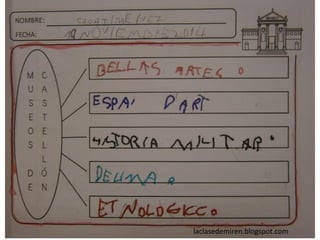 NOMBRE: SARA JIMÉNEZ
FECHA: 19 NOVIEMBRE 2014
MUSEOS DE
CASTELLÓN
BELLAS ARTES.
ESPAI D'ART
HISTORIA MILITAR.
DELIMA.
ETNOLÓGICO.
laclasedemiren.blogspot.com